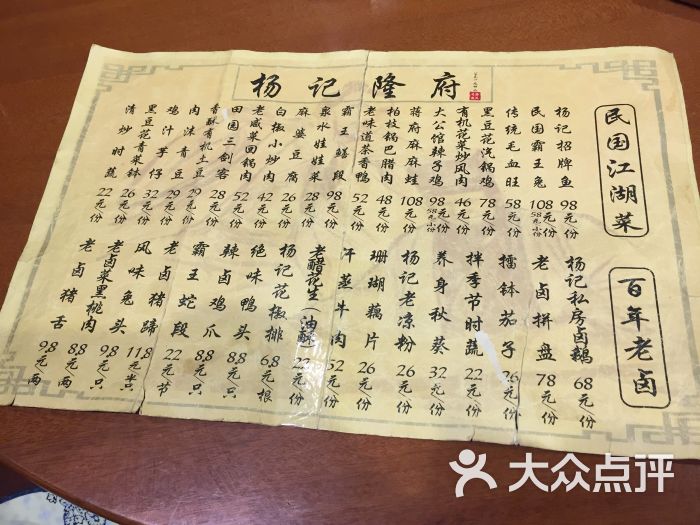 杨记隆府
民国江湖菜
杨记招牌鱼 98元/份
民国霸王兔 108元/份 58元/小份
传统毛血旺 58元/份
黑豆花汽锅鸡 78元/份
有机花菜炒风肉 46元/份
大公馆辣子鸡 98元/份 58元/小份
蒋府麻麻蛙 108元/份
柏枝锅巴腊肉 48元/份
老味道茶香鸭 52元/份
霸王鳝段 98元/份
泉水娃娃菜 28元/份
麻婆豆腐 26元/份
白椒小炒肉 42元/份
老咸菜回锅肉 52元/份
田园三剑客 28元/份
香酥有机土豆 29元/份
肉沫青豆 29元/份
鸡汁芋仔 32元/份
黑豆花青菜钵 26元/份
清炒时蔬 22元/份
百年老卤
杨记私房卤鹅 68元/份
老卤拼盘 78元/份
擂钵茄子 26元/份
拌季节时蔬 22元/份
养身秋葵 32元/份
杨记老凉粉 26元/份
珊瑚藕片 26元/份
汗蒸牛肉 52元/份
老醋花生(油酥) 22元/份
杨记花椒排 6.8元/根
绝味鸭头 8.8元/只
辣卤鸡爪 8.8元/只
霸王蛇段 22元/节
老卤猪蹄 11.8元/半只
风味兔头 9.8元/只
老卤菜黑桃肉 8.8元/两
老卤猪舌 9.8元/两
大众点评